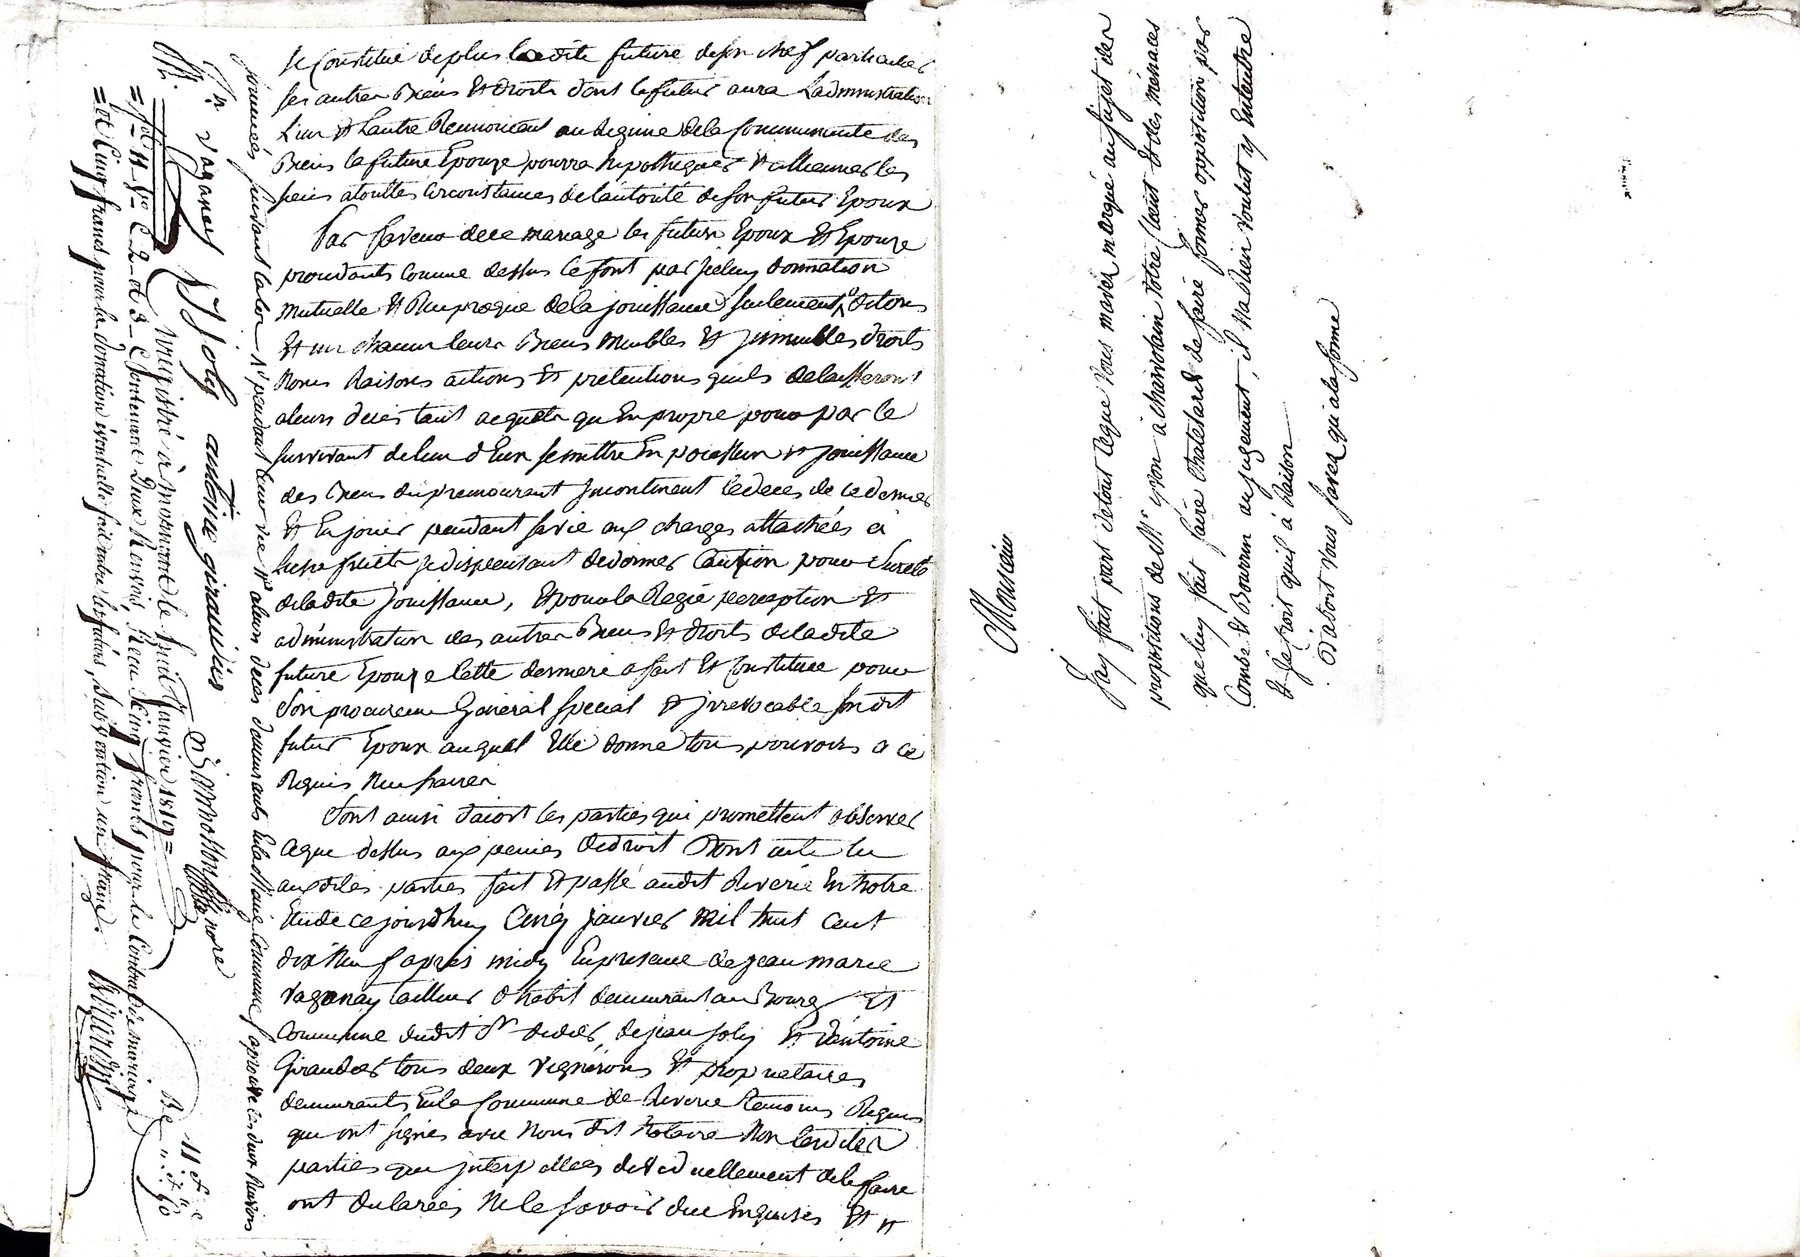 Se Constitue de plus ladite future de son chef particulier
ses autres Biens Et droits dont le futur aura Ladministration
L'un et Lautre Renoncent au Regime de la Communauté des
Biens la future Epouze pourra hipothequer et allienner les
siens a touttes Circonstances de lautorité de son futur Epoux
Par faveur de ce mariage les futurs Epoux Et Epouze
procedants Comme dessus se font par donnation
mutuelle Et Reciproque de la jouissance seulement de tous
Et un chacun leurs Biens Meubles Et immeubles droits
Noms Raisons actions Et pretentions quils delaisseront
a leurs deces tant acquets qu En propre pour par le
survivant de lun d'Eux se mettre En possession et jouissance
des Biens du premourant incontinent le deces de ce dernier
Et En jouir pendant sa vie aux charges attachées a
se dispensant de donner Caution pour Sureté
de ladite jouissance, Et pour la Regie perception Et
administration des autres Biens Et droits de ladite
future Epouze Cette derniere a fait Et Constitue pour
Son procureur General Special et irrevocable son dit
futur Epoux auquel Elle donne tous pouvoirs a ce
Requis Necessaires
Sont ainsi daccort les parties qui promettent observer
Ce que dessus aux peines de droit Dont acte lu
auxdites parties fait Et passé audit Riverie En notre
Etude ce jourdhuy Cinq janvier Mil huit Cent
dix Neuf apres midy En presence de jean marie
Vaganay tailleur d'habit demeurant au Bourg Et
Commune dudit St didier, de jean joly Et d'antoine
Giraudier tous deux vignerons Et proprietaires
demeurants En la Commune de Riverie temoins Requis
qui ont signés avec Nous dit Notaire Non lesdites
parties qui interpellées de le faire
ont declarées Ne le Savoir due Enquises Et
journées suivant la loi pendant leur vie a leurs deces demeurants En la même Commune approuvé les deux Renvois
J. m. vaganay J Joly antoine giraudier
Enregistré à mornant le huit Janvier 1819
fol. 11 Vo C. 2 et 3 Contenant Deux Renvois Reçu Cinq francs pour le Contrat de mariage
et Cinq francs pour la donation éventuelle faite entre les futurs, Subvention un franc
11 f c
Monsieur
J'ay fait part de tout ce que vous mavez marqué au sujet des
propositions de Mr yvon à charvolain votre Client Et des ménaces
que luy fait faire Chatelard de faire former opposition par
Combe Et Bourrin au jugement, il na Rien voulut y Entendre
Et je crois quil à Raison
D'abort vous savez qu a la forme